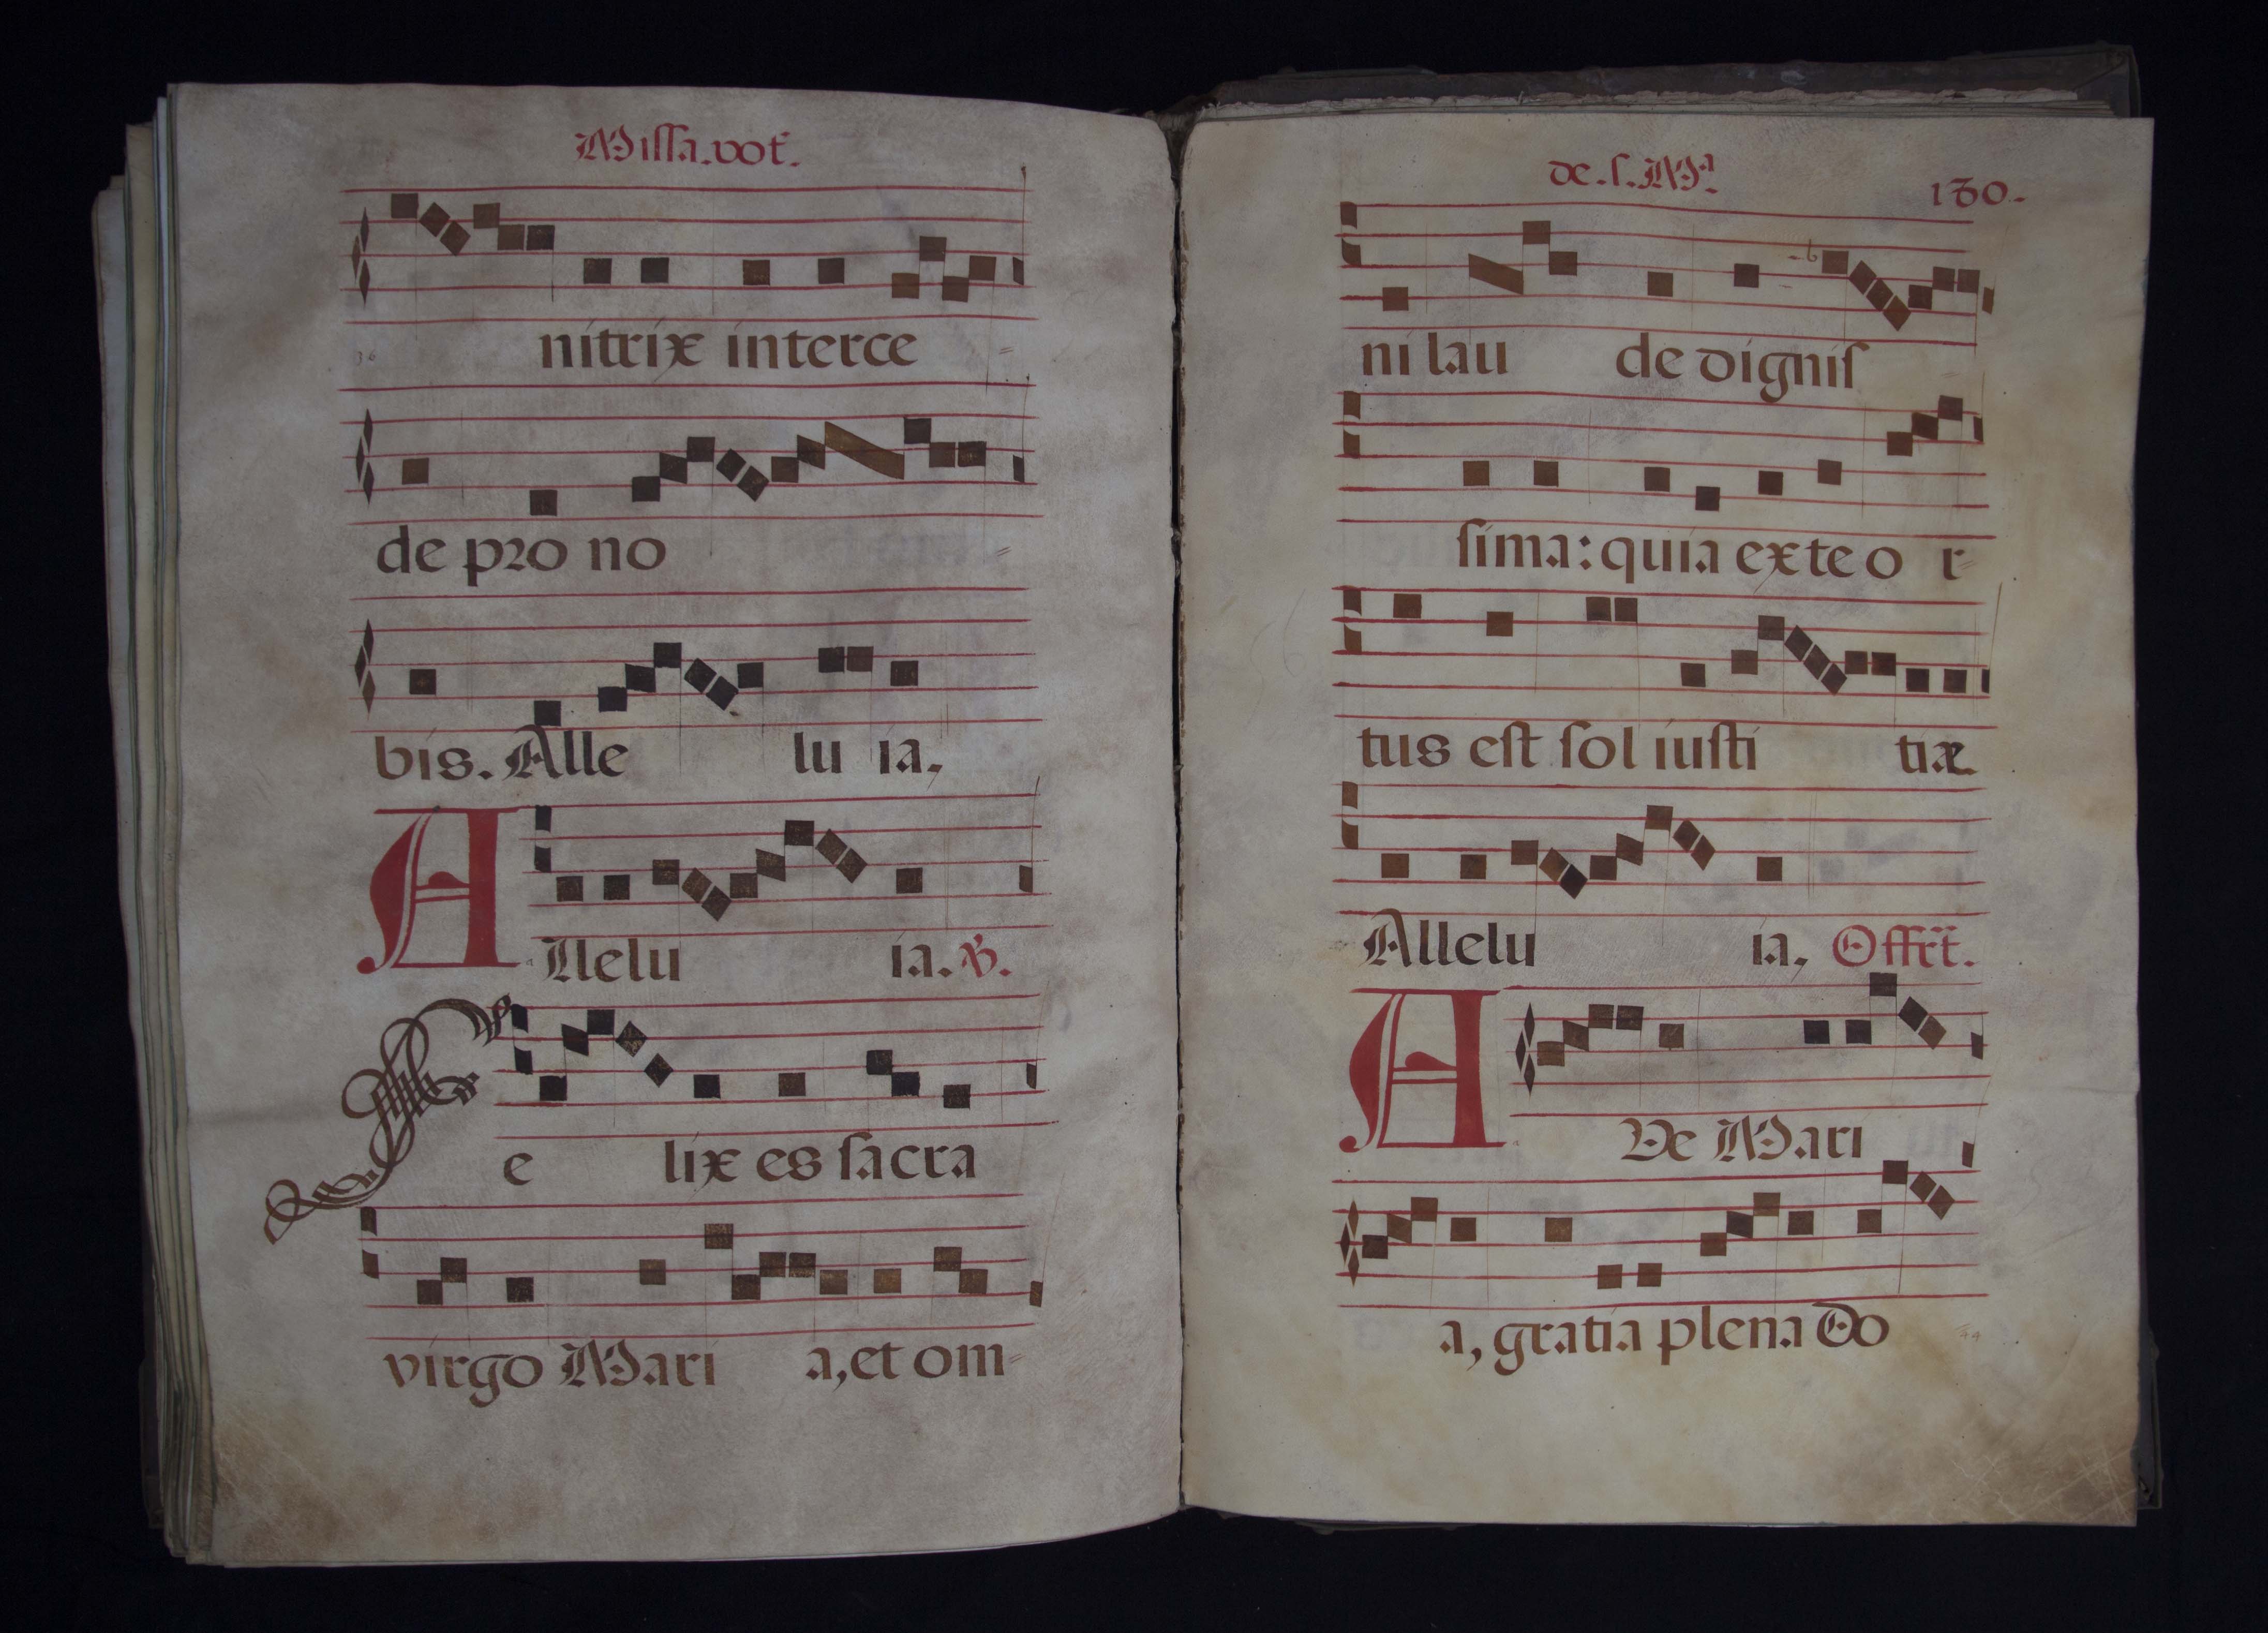 Missa.vot.
nitrix interce
de pro no
bis. Alle lu ia,
Allelu ia. ℣.
Fe lix es sacra
virgo Mari a, et om
de.s.Mª
180.
ni lau de dignis
sima: quia ex te o r
tus est sol iusti tiæ
Allelu ia, Offrt.
AVe Mari
a, gratia plena Do